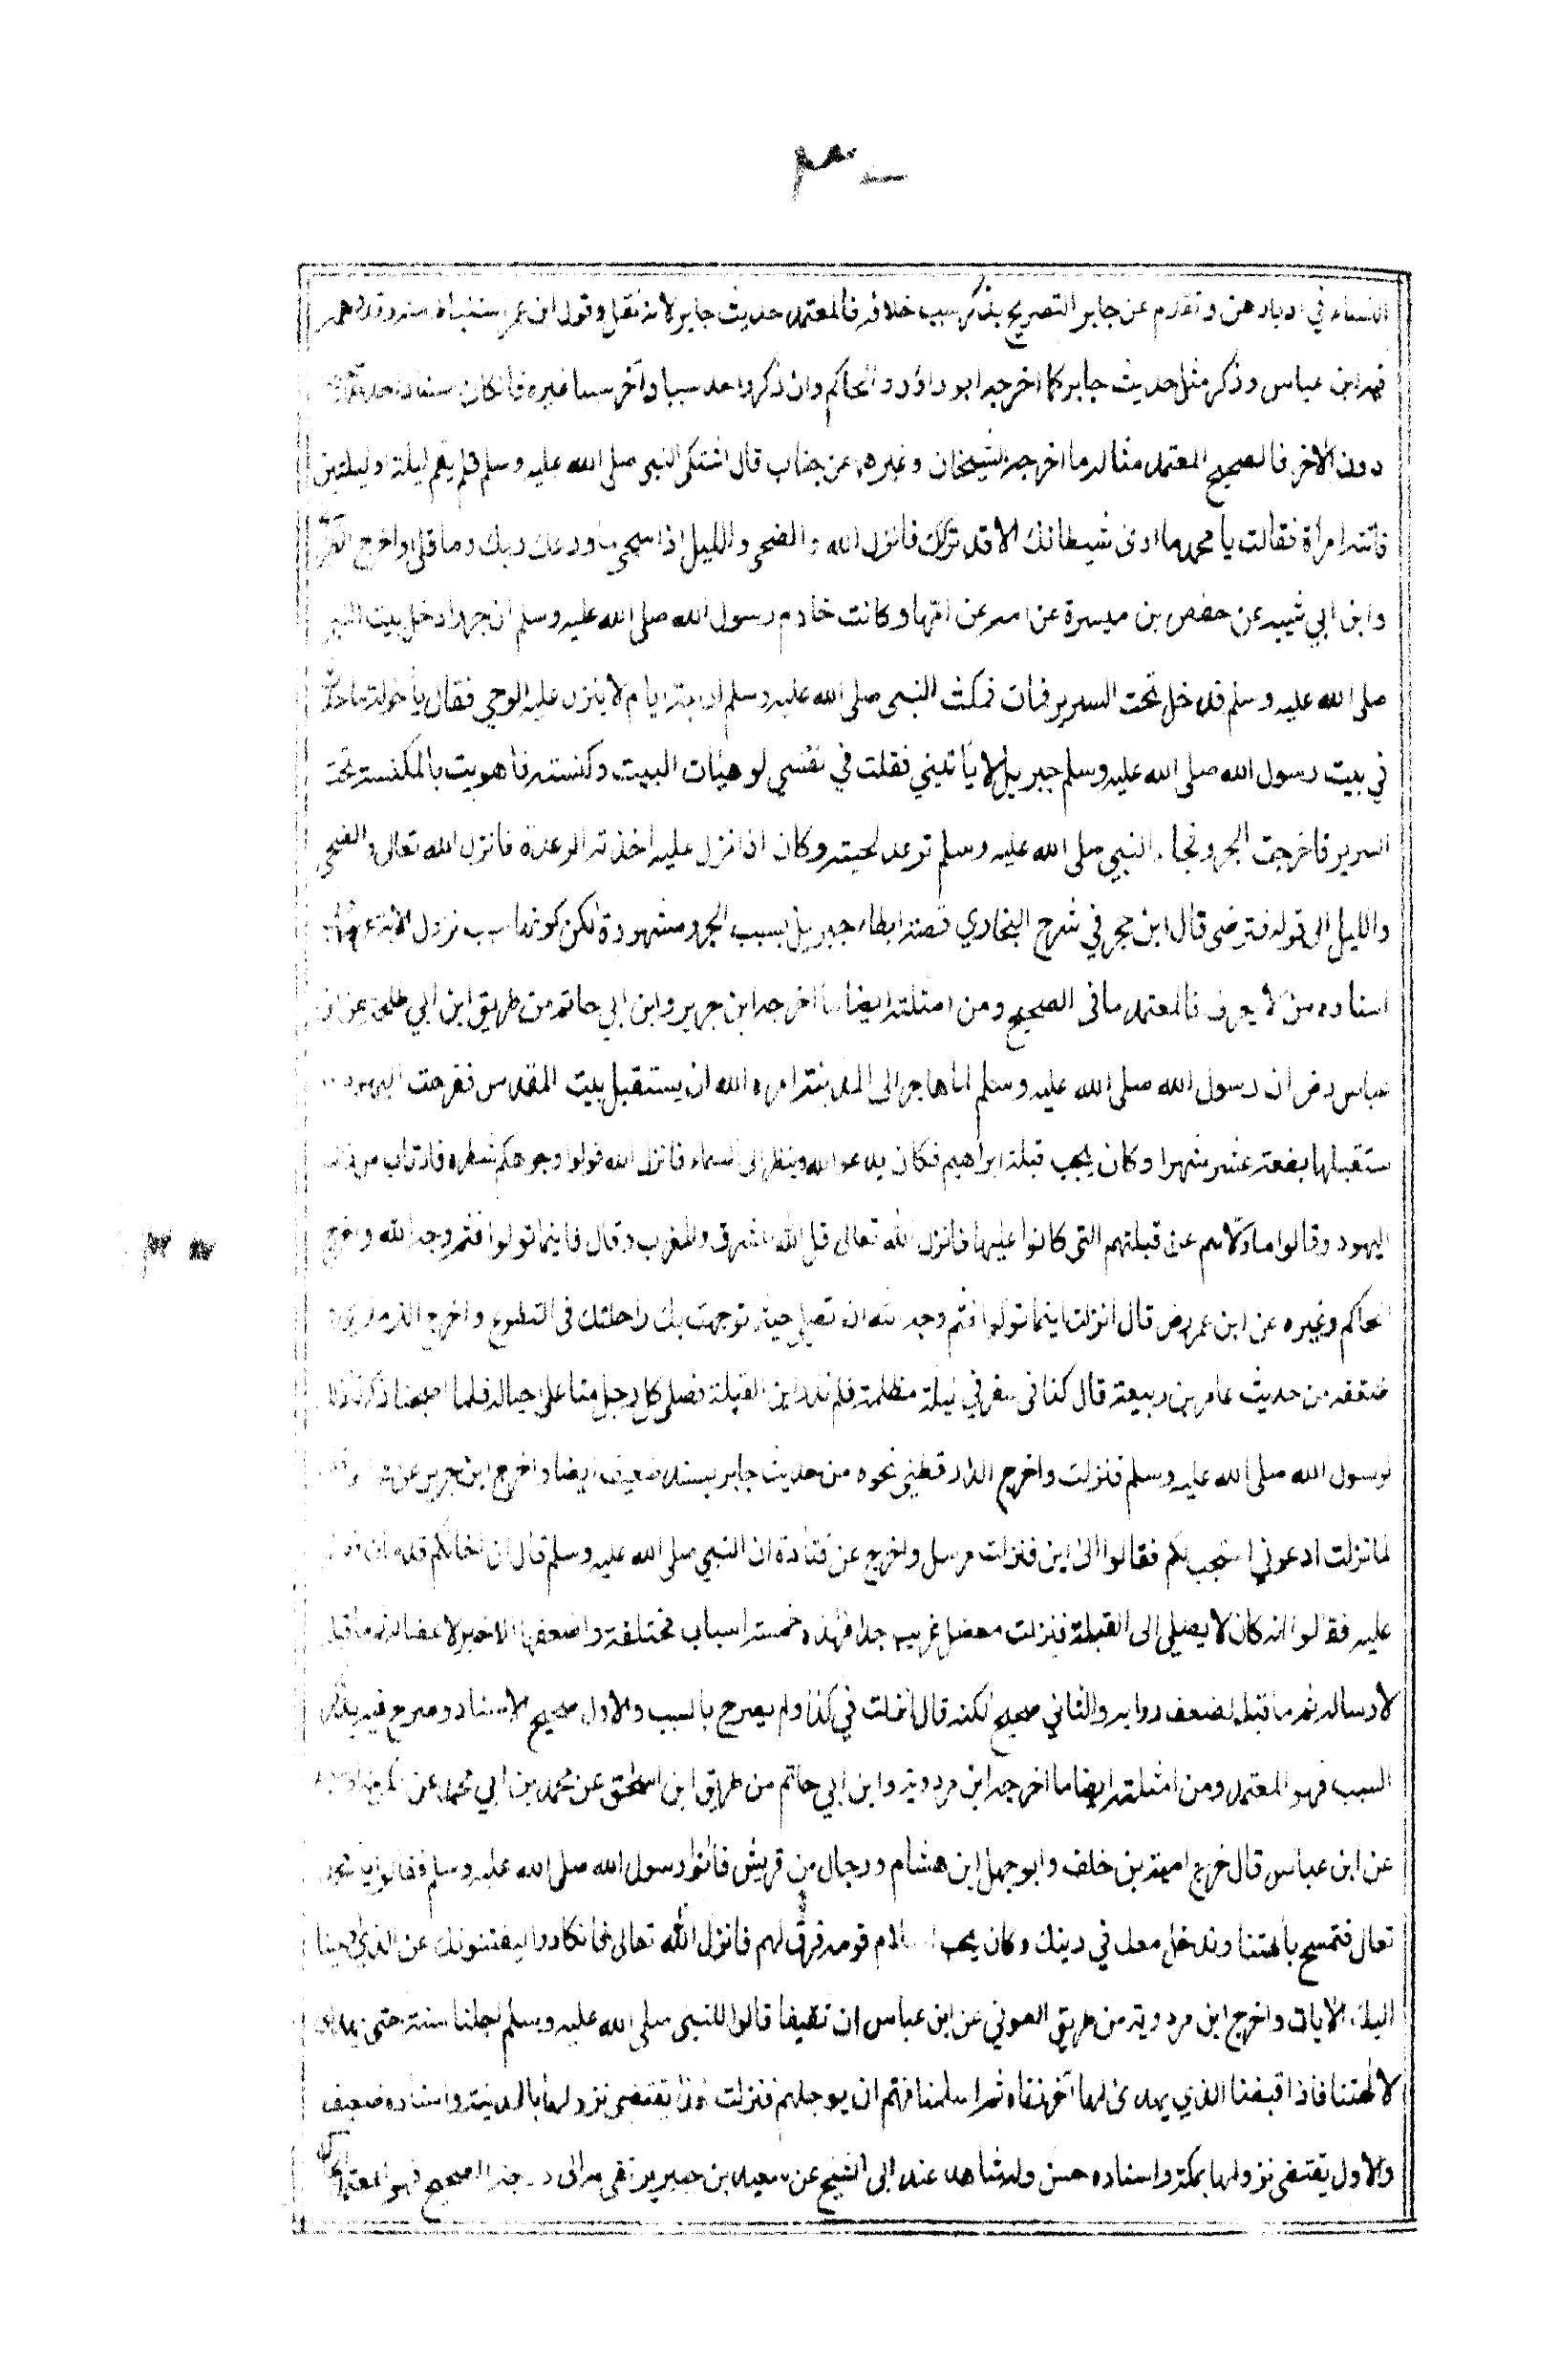 النساء في ادبارهن وتقدم عن جابر التصريح بذكر سبب خلافه فالمعتمد حديث جابر لانه نقل وقول ابن عمر استنباط منه وقد وهمه
فيه ابن عباس وذكر مثل حديث جابر كما اخرجه ابو داؤد والحاكم وان ذكر واحد سببا وآخر سببا غيره فان كان اسناد احدهما
دون الاخر فالصحيح المعتمد مثاله ما اخرجه الشيخان وغيرهما عن جندب قال اشتكى النبى صلى الله عليه وسلم فلم يقم ليلة او ليلتين
فاتته امرأة فقالت يا محمد ما ارى شيطانك الا قد تركك فانزل الله والضحى والليل اذا سجى ما ودعك ربك وما قلى واخرج
وابن ابي شيبه عن حفص بن ميسرة عن امه عن امّها وكانت خادم رسول الله صلى الله عليه وسلم ان جروا دخل بيت النبى
صلى الله عليه وسلم فدخل تحت السرير فمات فمكث النبى صلى الله عليه وسلم اربعة ايام لا ينزل عليه الوحي فقال يا خولة ما حدث
في بيت رسول الله صلى الله عليه وسلم جبريل لا يأتيني فقلت في نفسي لو هيأت البيت وكنسته فاهويت بالمكنسة تحت
السرير فاخرجت الجرو فجاء النبي صلى الله عليه وسلم ترعد لحيته وكان اذا نزل عليه اخذته الرعدة فانزل الله تعالى والضحى
والليل الى قوله فترضى قال ابن حجر في شرح البخاري قصة ابطاء جبريل بسبب الجرو مشهورة لكن كونها سبب نزول الاية غريب
اسناده من لا يعرف فالمعتمد ما فى الصحيح ومن امثلته ايضا ما اخرجه ابن جرير وابن ابي حاتم من طريق ابن ابي طلحة عن ابن
عباس رض ان رسول الله صلى الله عليه وسلم لما هاجر الى المدينة امره الله ان يستقبل بيت المقدس ففرحت اليهود
ستقبلها بضعة عشر شهرا وكان يحب قبلة ابراهيم فكان يدعو الله وينظر الى السماء فانزل الله فولوا وجوهكم شطره فارتاب من ذلك
اليهود وقالوا ما ولّاهم عن قبلتهم التى كانوا عليها فانزل الله تعالى قل لله المشرق والمغرب وقال فاينما تولوا فثم وجه الله واخرج
الحاكم وغيره عن ابن عمر رض قال انزلت اينما تولوا فثم وجه الله ان تصلى حيث توجهت بك راحلتك فى التطوع واخرج الترمذي
ضعفه من حديث عامر بن ربيعة قال كنا فى سفر في ليلة مظلمة فلم ندر اين القبلة فصلى كل رجل منا على حياله فلما اصبحنا ذكرنا ذلك
لرسول الله صلى الله عليه وسلم فنزلت واخرج الدارقطني نحوه من حديث جابر بسند ضعيف ايضا واخرج ابن جرير عن
لما نزلت ادعوني استجب لكم فقالوا الى اين فنزلت مرسل واخرج عن قتادة ان النبي صلى الله عليه وسلم قال ان اخا لكم قد مات
عليه فقالوا انه كان لا يصلى الى القبلة فنزلت معضل غريب جدا فهذه خمسة اسباب مختلفة واضعفها الاخير لاعضاله ثم ما قبله
لارساله ثم ما قبله لضعف رواته والثاني صحيح لكنه قال انزلت في كذا ولم يصرح بالسبب والاول صحيح الاسناد وصرح فيه بذكر
السبب فهو المعتمد ومن امثلته ايضا ما اخرجه ابن مردويه وابن ابي حاتم من طريق ابن اسحق عن محمد بن ابي محمد عن عكرمة
عن ابن عباس قال خرج امية بن خلف وابو جهل ابن هشام ورجال من قريش فاتوا رسول الله صلى الله عليه وسلم فقالوا يا محمد
تعال فتمسح بآلهتنا وندخل معك في دينك وكان يحب اسلام قومه فرق لهم فانزل الله تعالى وان كادوا ليفتنونك عن الذي اوحينا
اليك الآيات واخرج ابن مردويه من طريق العوفي عن ابن عباس ان ثقيفا قالوا للنبى صلى الله عليه وسلم اجلنا سنة حتى يهدى
لآلهتنا فاذا قبضنا الذي يهدى لها احرزناه ثم اسلمنا فهم ان يوجلهم فنزلت هذا يقتضى نزولها بالمدينة واسناده ضعيف
والاول يقتضى نزولها بمكة واسناده حسن وله شاهد عند ابى الشيخ عن سعيد بن جبير يرتقى به الى درجة الصحيح فهو المعتمد